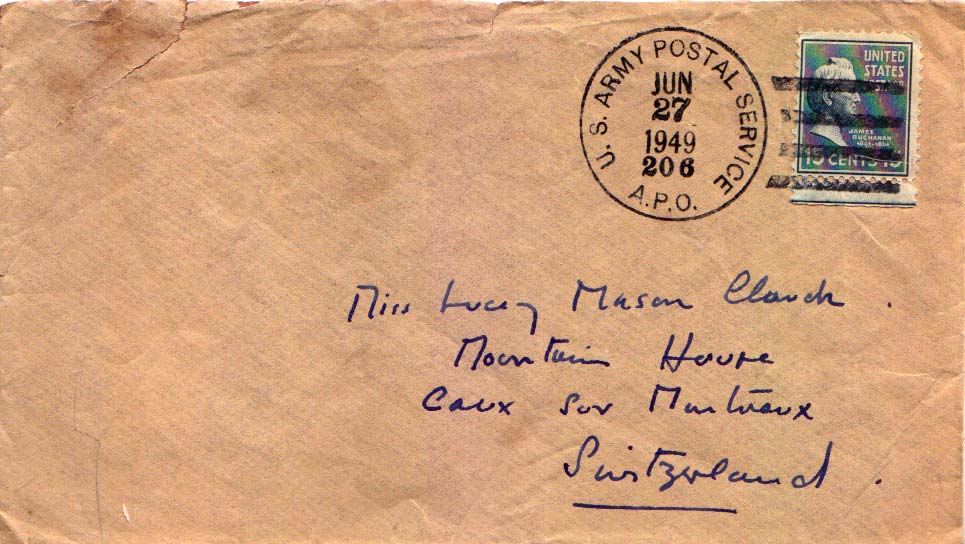 U. S. ARMY POSTAL SERVICE
JUN
27
1949
206
A.P.O.
UNITED
STATES
POSTAGE
JAMES
BUCHANAN
1857-1861
15 CENTS 15
Miss Lucy Mason Clark .
Mountain House
Caux sur Montreux
Switzerland .